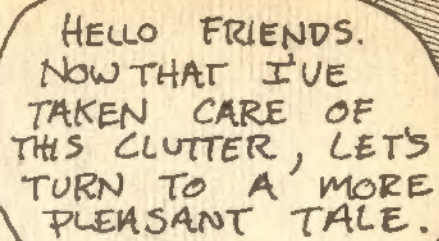 HELLO FRIENDS.
NOW THAT I'VE
TAKEN CARE OF
THIS CLUTTER, LET'S
TURN TO A MORE
PLEASANT TALE.